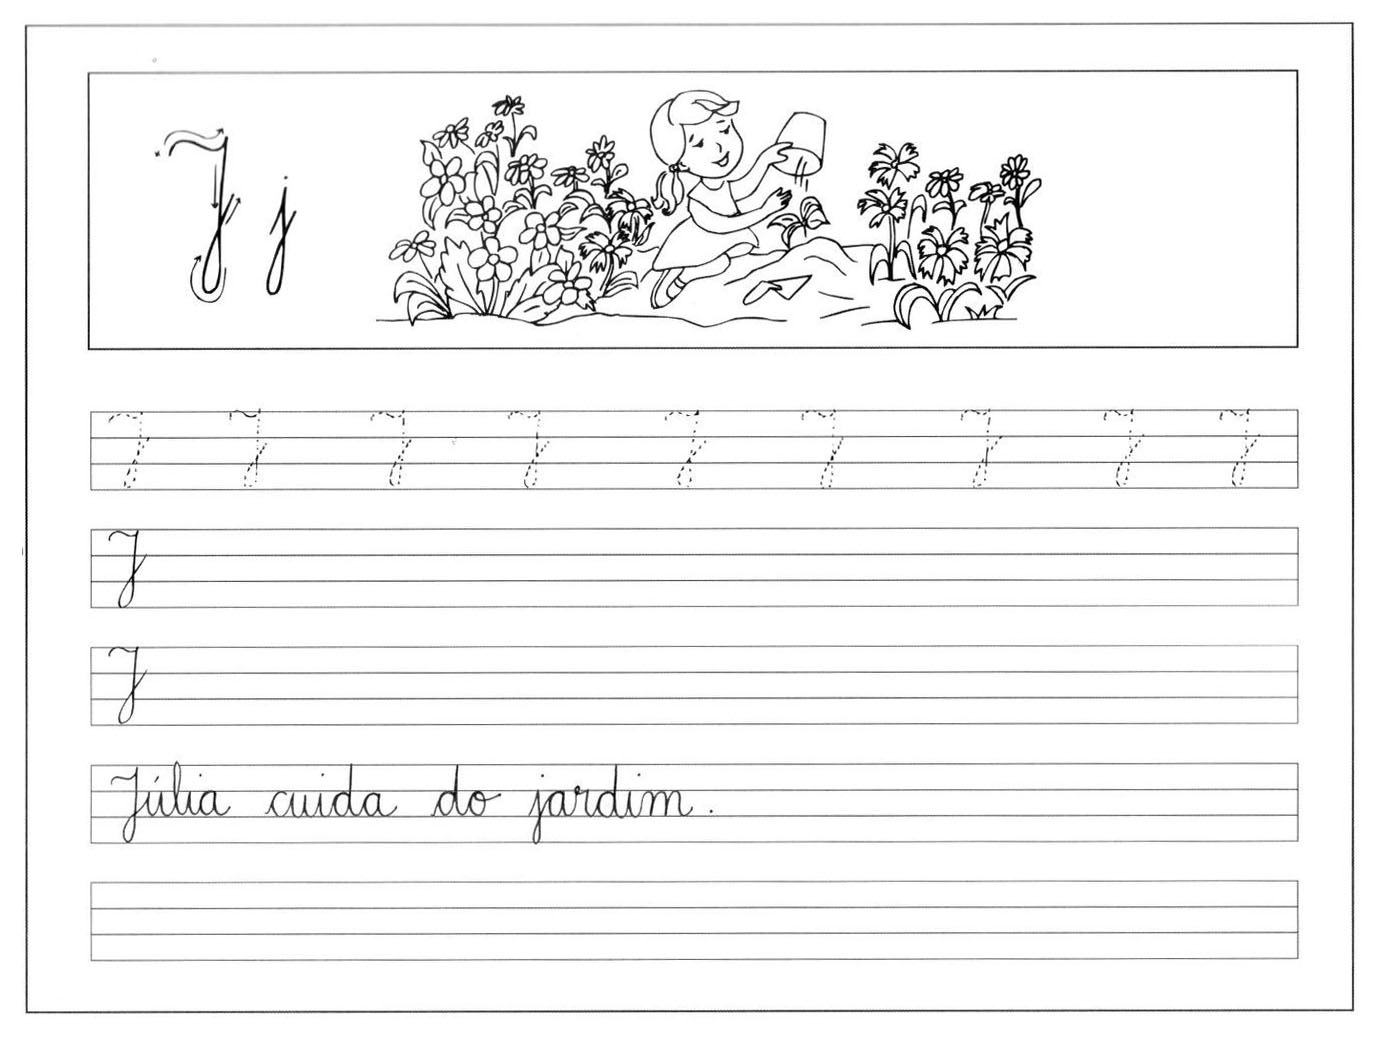 J j
J J J J J J J J J
J
J
Júlia cuida do jardim.